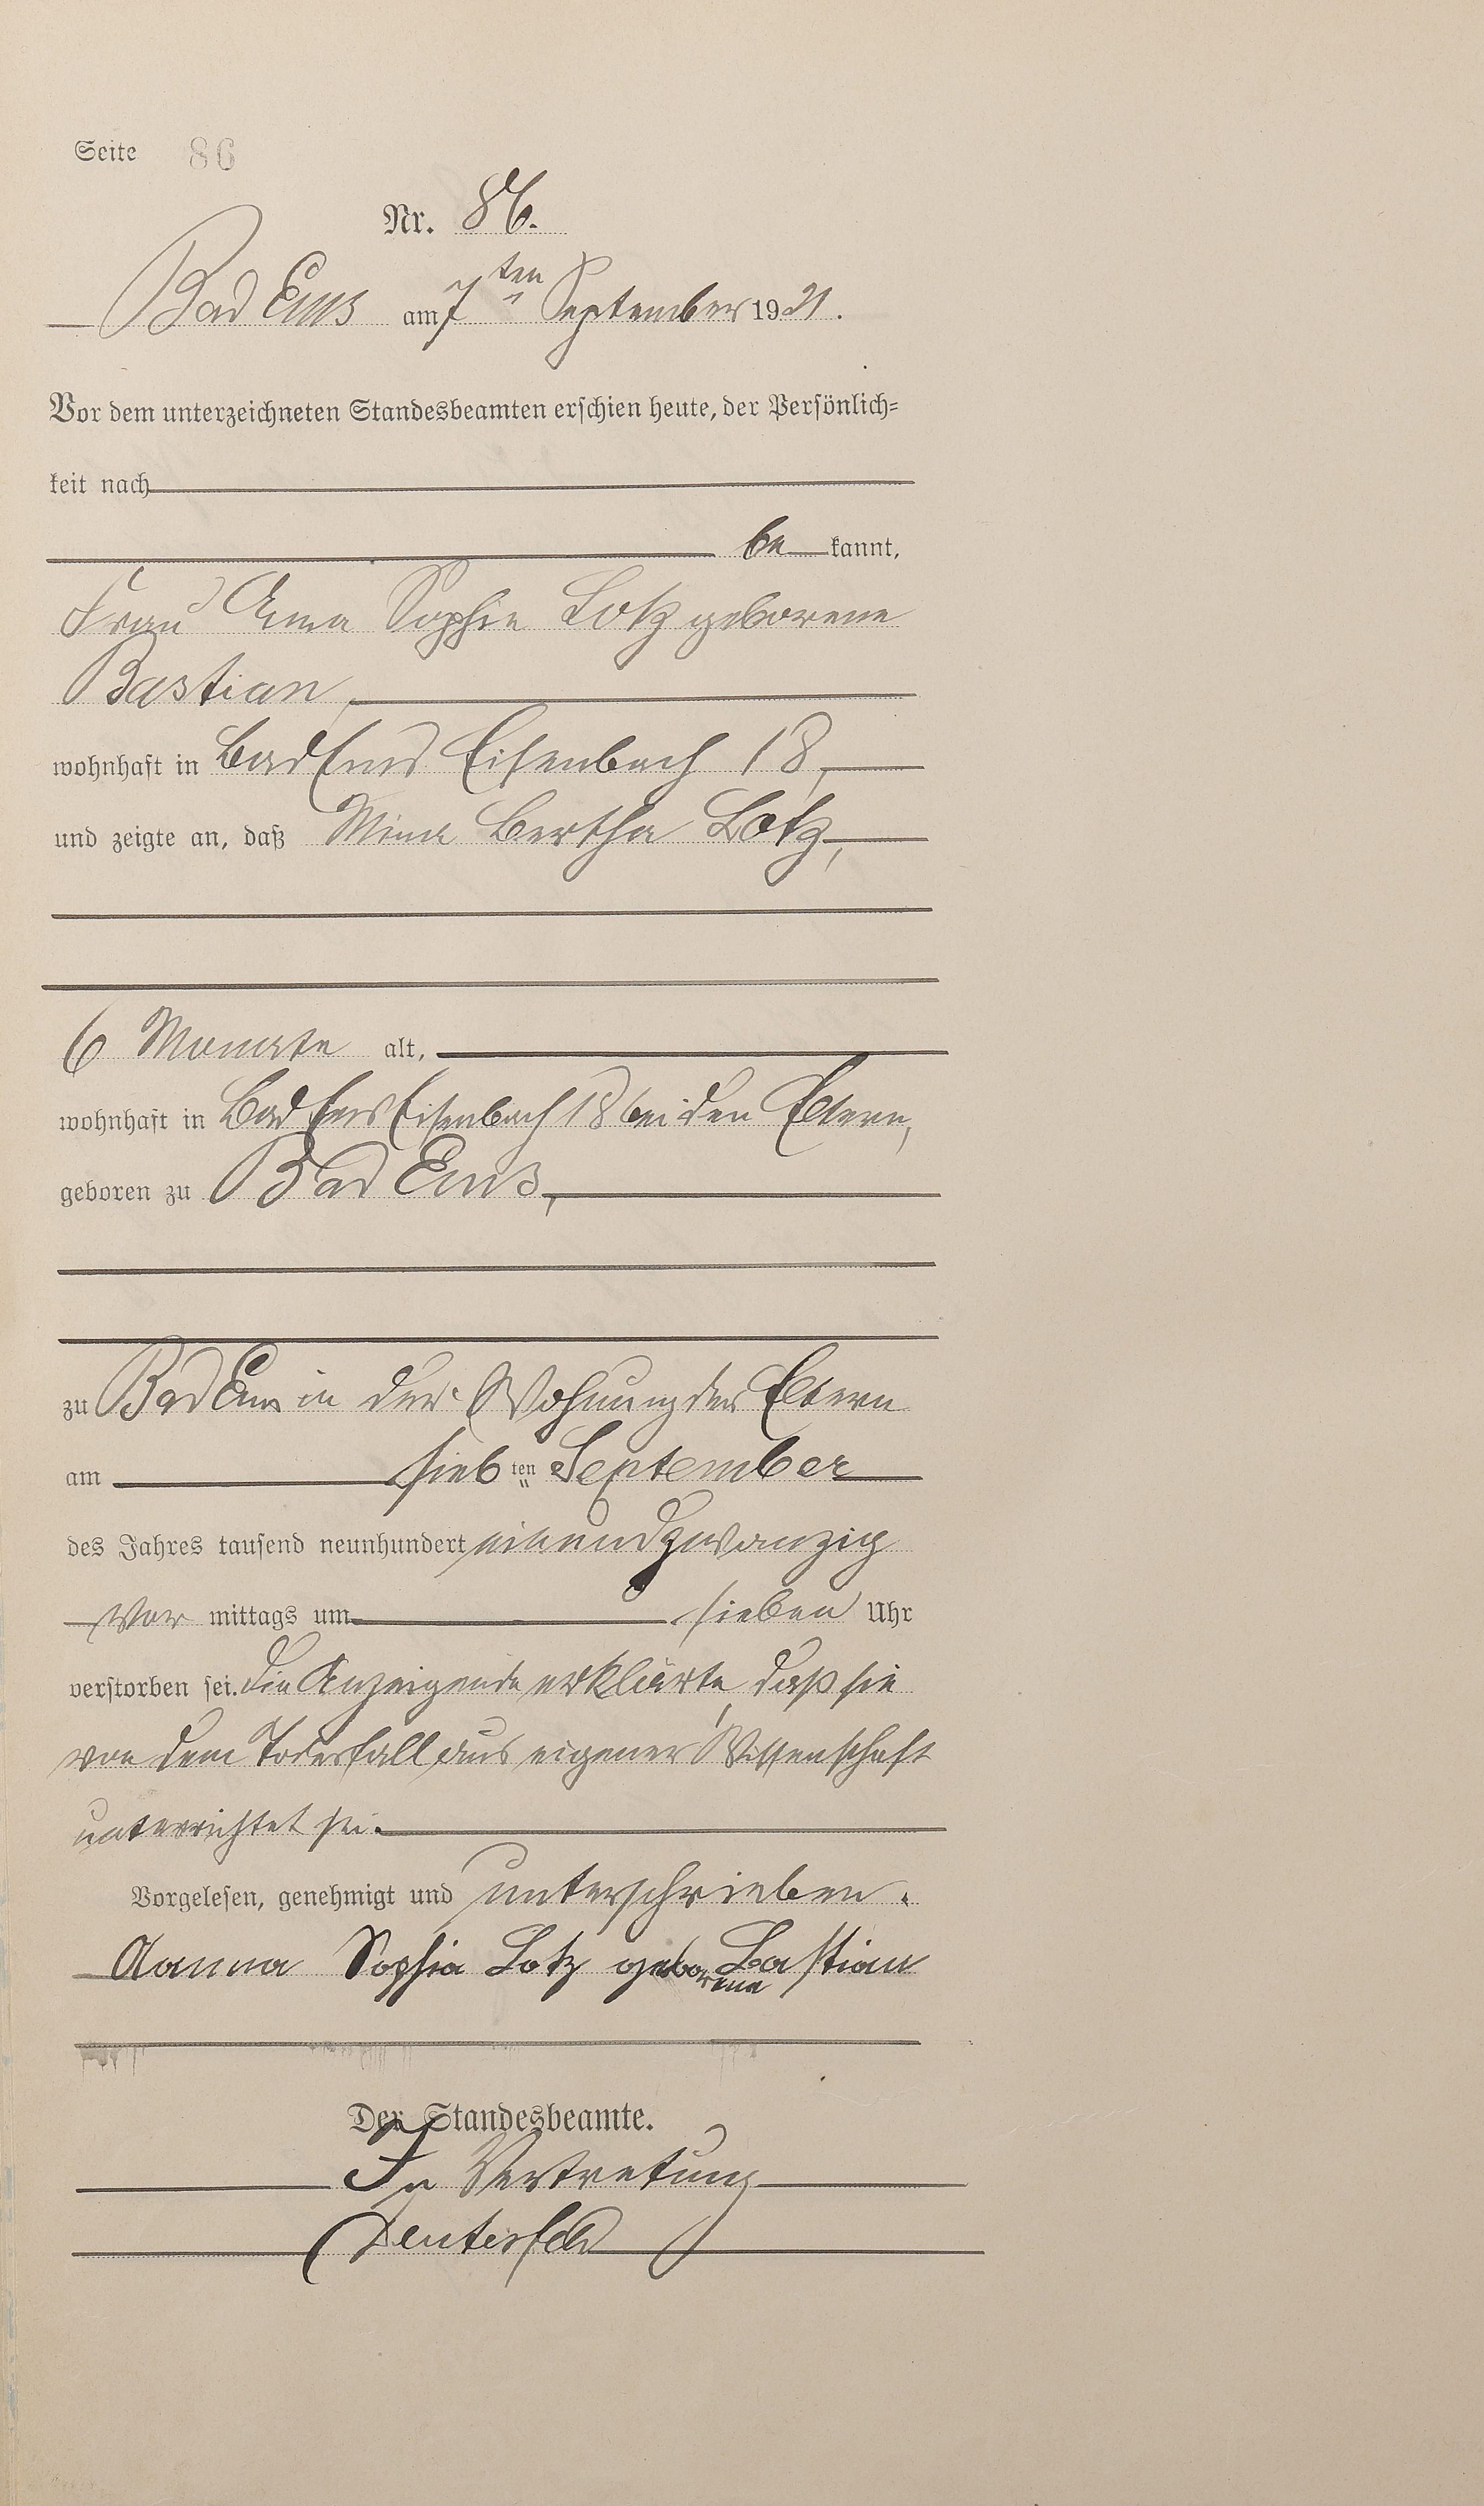 Seite 86
Nr. 86.
Bad Ems am 7ten September 1921.
Vor dem unterzeichneten Standesbeamten erschien heute, der Persönlich=
keit nach
be kannt,
Frau Anna Sophie Lotz geborene
Bastian,
wohnhaft in Bad Ems Eisenbach 18,
und zeigte an, daß Mina Bertha Lotz,
6 Monate alt,
wohnhaft in Bad Ems Eisenbach 18 bei den Eltern,
geboren zu Bad Ems,
zu Bad Ems in der Wohnung der Eltern
am siebten September
des Jahres tausend neunhundert einundzwanzig
vor mittags um sieben Uhr
verstorben sei. Die Anzeigende erklärte, daß sie
von dem Todesfall aus eigener Wissenschaft
unterrichtet sei.
Vorgelesen, genehmigt und unterschrieben.
Aanna Sophia Lotz geborene Bastian
Der Standesbeamte.
In Vertretung